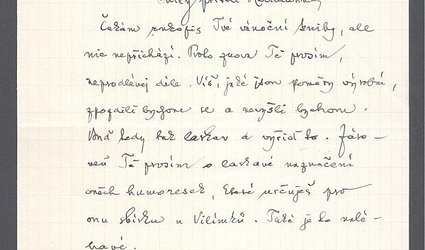 Milý příteli
Čekám rukopis Tvé vánoční knihy, ale
nic nepřichází. Proto znova Tě prosím,
neprodlévej déle. Víš, jaké jsou poměry výrobní,
zpozdili bychom se a nevyšli bychom.
Buď tedy tak laskav a vyřiď to. Záro-
veň Tě prosím o laskavé naznačení
oněch humoresek, které určuješ pro
onu sbírku u Vilímků. Také je to nalé-
havé.